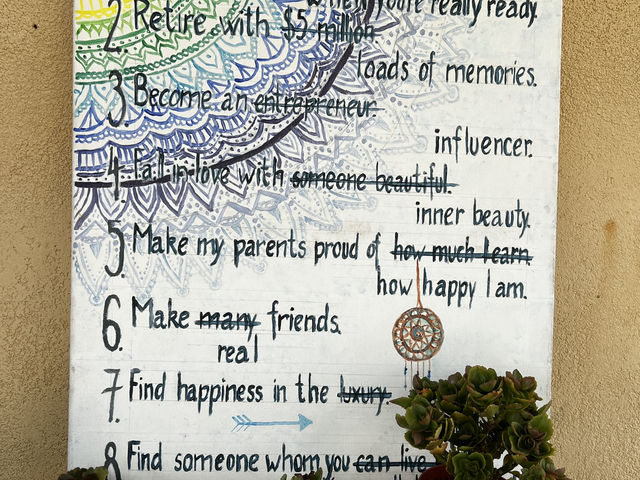 when you're really ready.
2. Retire with $5 million
loads of memories.
3. Become an entrepreneur.
influencer.
4. Fall in love with someone beautiful.
inner beauty.
5. Make my parents proud of how much I earn.
how happy I am.
6. Make many friends.
real
7. Find happiness in the luxury.
8 Find someone whom you can live